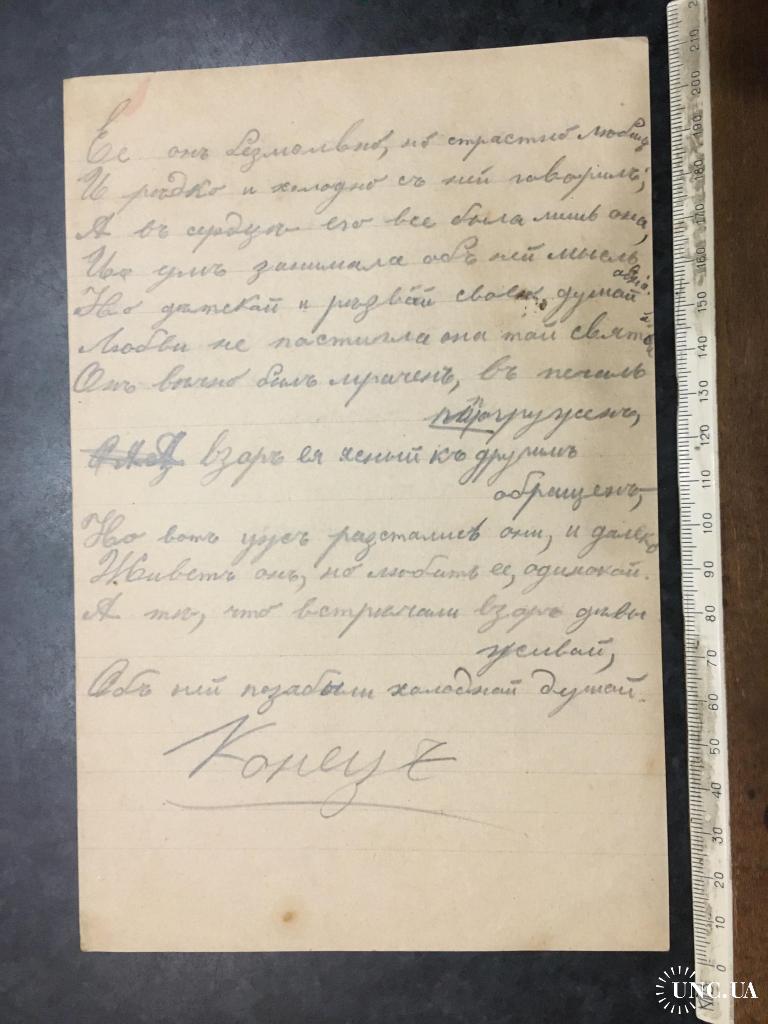 Ее онъ безмолвно, но страстно любилъ
И рѣдко и холодно съ ней говорилъ;
А въ сердцѣ его все была лишь она,
Ие умъ занимала объ ней мысль
одна.
Но дѣтской и рѣзвой своею думой
Любви не постигла она той святой
Онъ вѣчно былъ мраченъ, въ печаль
погруженъ,
взоръ ея ясный къ другимъ
обращенъ,
Но вотъ ужъ разстались они, и далеко
Живетъ онъ, но любитъ ее, одинокой.
А тѣ, что встрѣчали взоръ дѣвы
живой,
Объ ней позабыли холодной душой.
Конецъ
210 200 190 180 170 160 150 140 130 120 110 100 90 80 70 60 50 40 30 20 10 0
UNC.UA